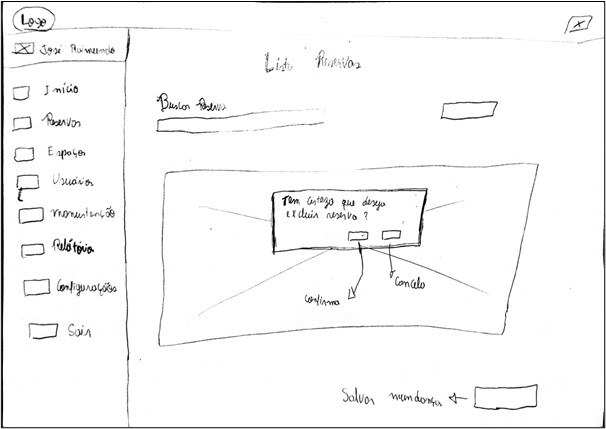 Logo
José Raimundo
Início
Reservas
Espaços
Usuários
Manutenção
Relatório
Configurações
Sair
Lista Reservas
Buscar Reserva
Tem certeza que deseja
excluir reserva ?
Confirma
Cancela
Salvar mudança